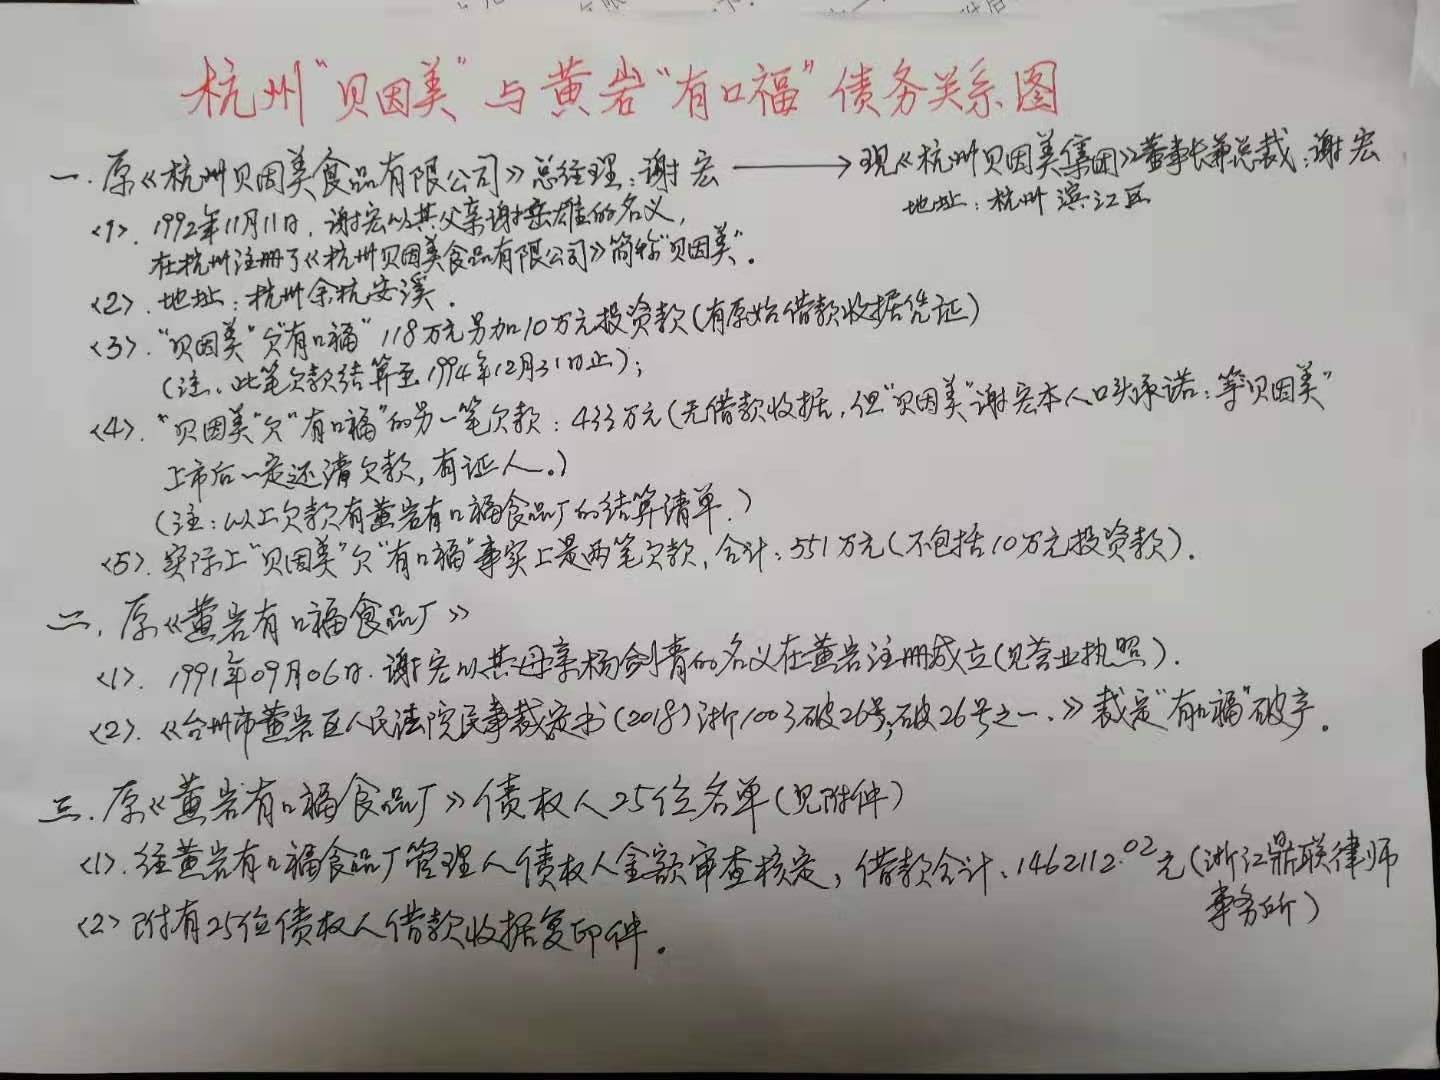 杭州“贝因美”与黄岩“有口福”债务关系图
一.原《杭州贝因美食品有限公司》总经理:谢宏 → 现《杭州贝因美集团》董事长兼总裁:谢宏
地址:杭州滨江区
<1>. 1992年11月11日,谢宏以其父亲谢岳雄的名义,
在杭州注册了《杭州贝因美食品有限公司》简称“贝因美”.
<2>.地址:杭州余杭安溪.
<3>.“贝因美”欠“有口福”118万元另加10万元投资款(有原始借款收据凭证)
(注:此笔欠款结算至1994年12月31日止);
<4>.“贝因美”欠“有口福”的另一笔欠款:433万元(无借款收据,但“贝因美”谢宏本人口头承诺:等“贝因美”
上市后一定还清欠款,有证人。)
(注:以上欠款有黄岩有口福食品厂的结算清单.)
<5>.实际上“贝因美”欠“有口福”事实上是两笔欠款,合计:551万元(不包括10万元投资款).
二.原《黄岩有口福食品厂》
<1>. 1991年09月06日.谢宏以其母亲杨剑青的名义在黄岩注册成立(见营业执照).
<2>.《台州市黄岩区人民法院民事裁定书(2018)浙1003破26号;破26号之一.》裁定“有口福”破产.
三.原《黄岩有口福食品厂》债权人25位名单(见附件)
<1>.经黄岩有口福食品厂管理人债权人金额审查核定,借款合计:1462112.02元(浙江鼎联律师
事务所)
<2>附有25位债权人借款收据复印件.